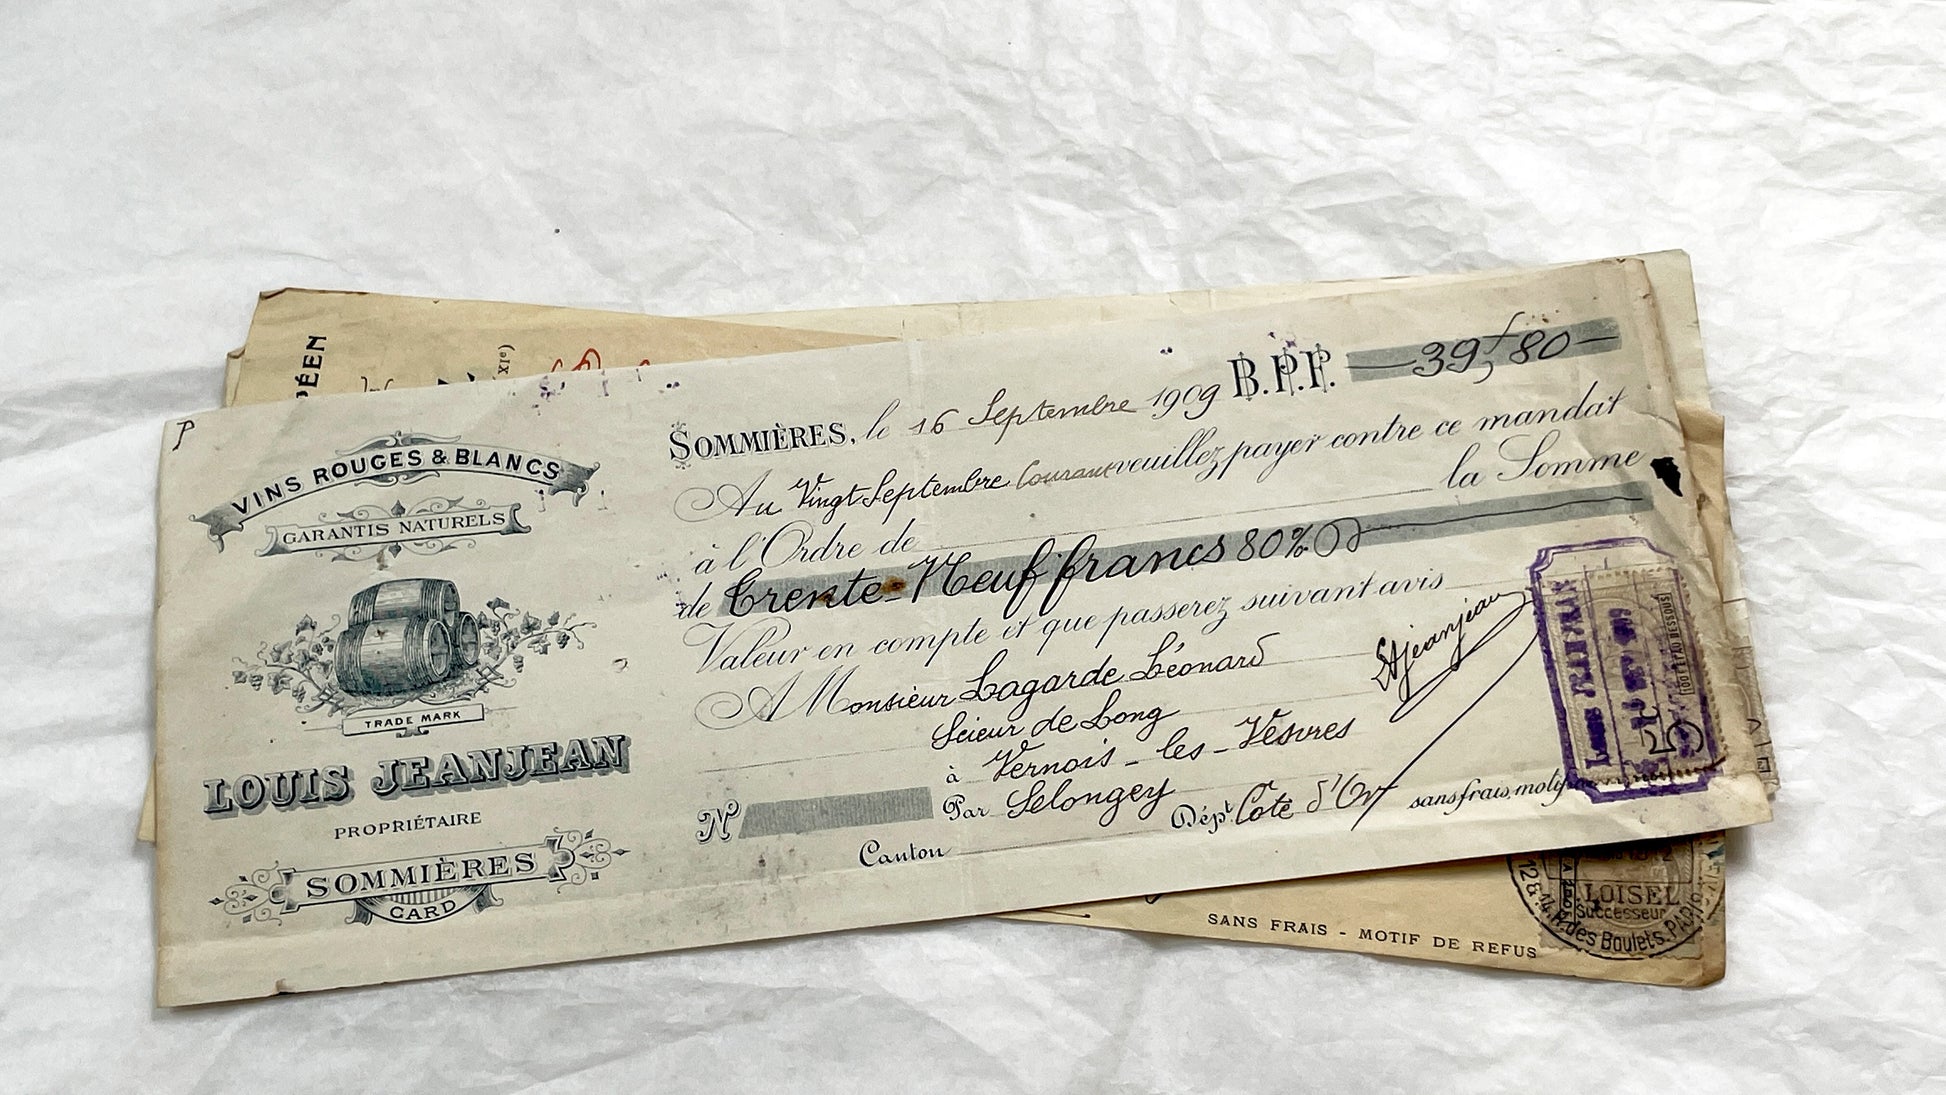 PÉEN
XIe)
P
VINS ROUGES & BLANCS
GARANTIS NATURELS
TRADE MARK
LOUIS JEANJEAN
PROPRIÉTAIRE
SOMMIÈRES
GARD
SOMMIÈRES, le 16 Septembre 1909 B.P.F. 39,f80
Au Vingt Septembre Courant veuillez payer contre ce mandat
à l'Ordre de la Somme
de Trente-Neuf francs 80%
Valeur en compte et que passerez suivant avis
A Monsieur Lagarde Léonard
Scieur de Long
à Vernois-les-Vesvres
No Par Selongey Dépt. Côte d'Or sans frais, motif
Canton
Ljeanjean
LOUIS JEANJEAN
100F ET AU DESSOUS
5c
SANS FRAIS - MOTIF DE REFUS
LOISEL
Successeur
R. des Boulets, PARIS